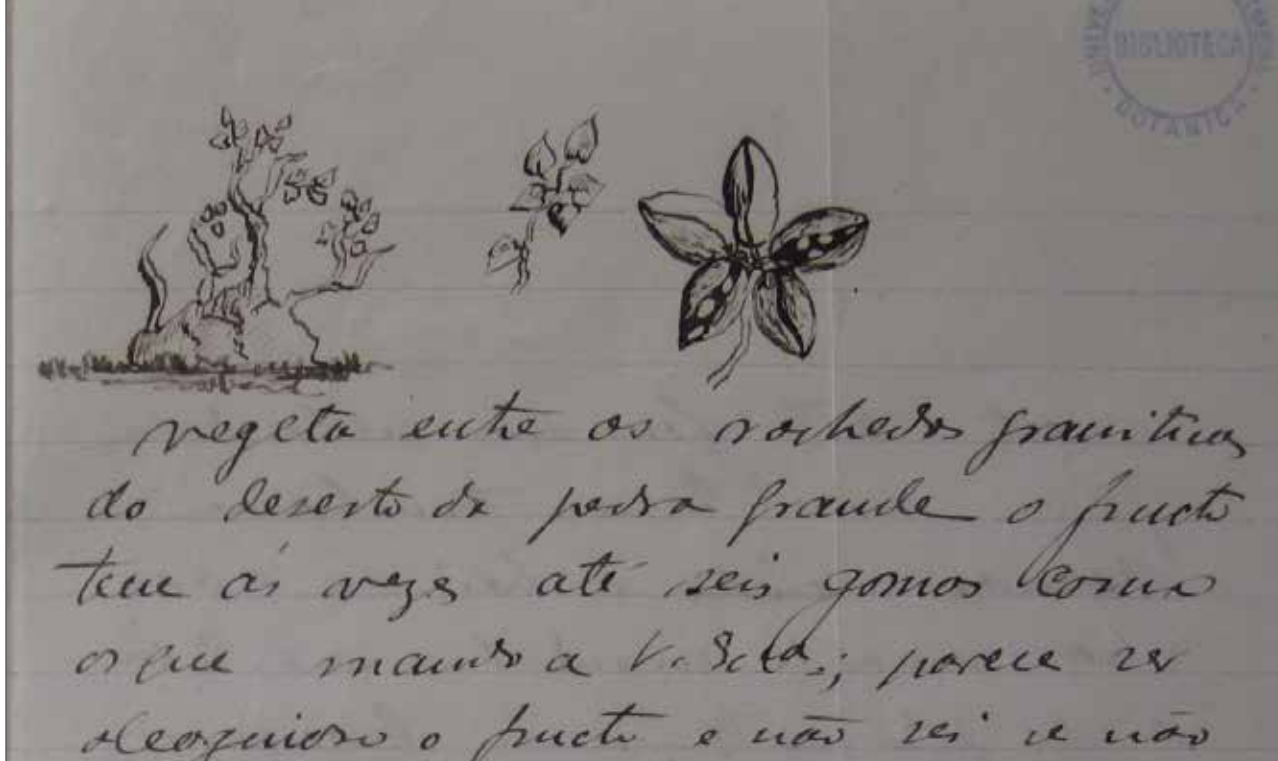 BIBLIOTECA
BOTANICA
vegeta entre os rochedos graniticos
do deserto da pedra grande o fructo
tem ás vezes até seis gomos como
os que mando a V. Sria.; parece ser
oleoginoso o fructo e não sei se não